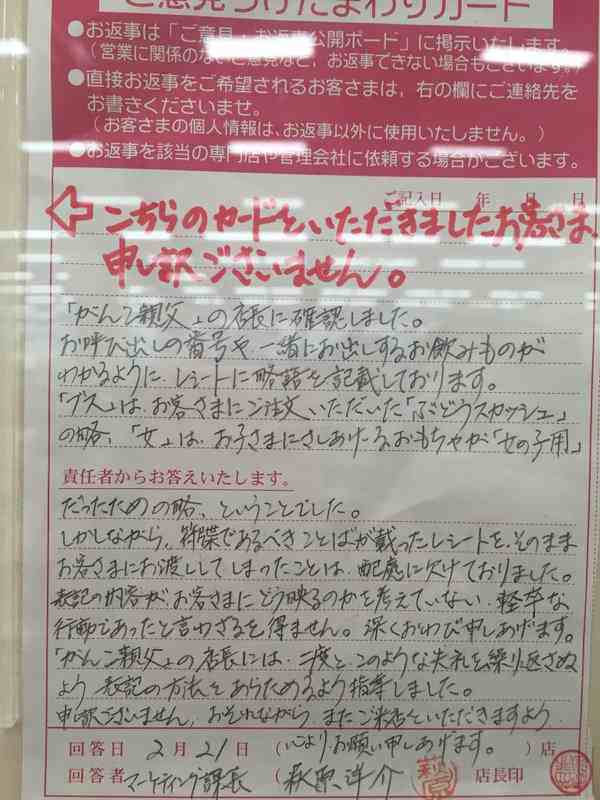 ご意見うけたまわりカード
●お返事は「ご意見・お返事公開ボード」に掲示いたします。
（営業に関係のないご意見など、お返事できない場合もございます。）
●直接お返事をご希望されるお客さまは、右の欄にご連絡先を
お書きくださいませ。
（お客さまの個人情報は、お返事以外に使用いたしません。）
●お返事を該当の専門店や管理会社に依頼する場合がございます。
ご記入日 年 月 日
⇦こちらのカードをいただきましたお客さま、
申し訳ございません。
「がんこ親父」の店長に確認しました。
お呼び出しの番号や、一緒にお出しするお飲みものが
わかるように、レシートに略語を記載しております。
「ブス」は、お客さまにご注文いただいた「ぶどうスカッシュ」
の略、「女」は、お子さまにさしあげるおもちゃが「女の子用」
責任者からお答えいたします。
だったための略、ということでした。
しかしながら、符牒であるべきことばが載ったレシートを、そのまま
お客さまにお渡ししてしまったことは、配慮に欠けておりました。
表記の内容が、お客さまにどう映るのかを考えていない、軽率な
行動であったと言わざるを得ません。深くおわび申しあげます。
「がんこ親父」の店長には、二度とこのような失礼を繰り返さぬ
よう、表記の方法をあらためるよう指導しました。
申し訳ございません。おそれながら、またご来店をいただきますよう、
回答日 2月21日 （心よりお願い申しあげます。）店
回答者 マーケティング課長 （萩原洋介 萩原 店長印